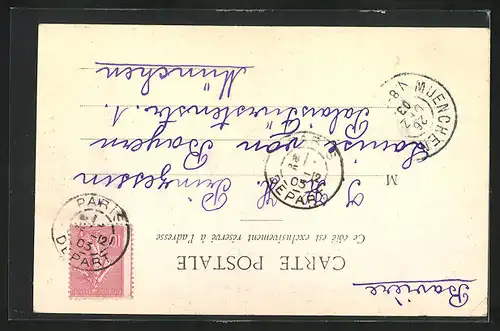 CARTE POSTALE
Ce côté est exclusivement réservé à l'adresse
M
I. K. H.
Prinzessin
Louise von Bayern
Palais Fürstenstr. 1.
München
Bavière
PARIS
12
03
DEPART
PARIS
12
03
DEPART
MUENCHEN
26
03